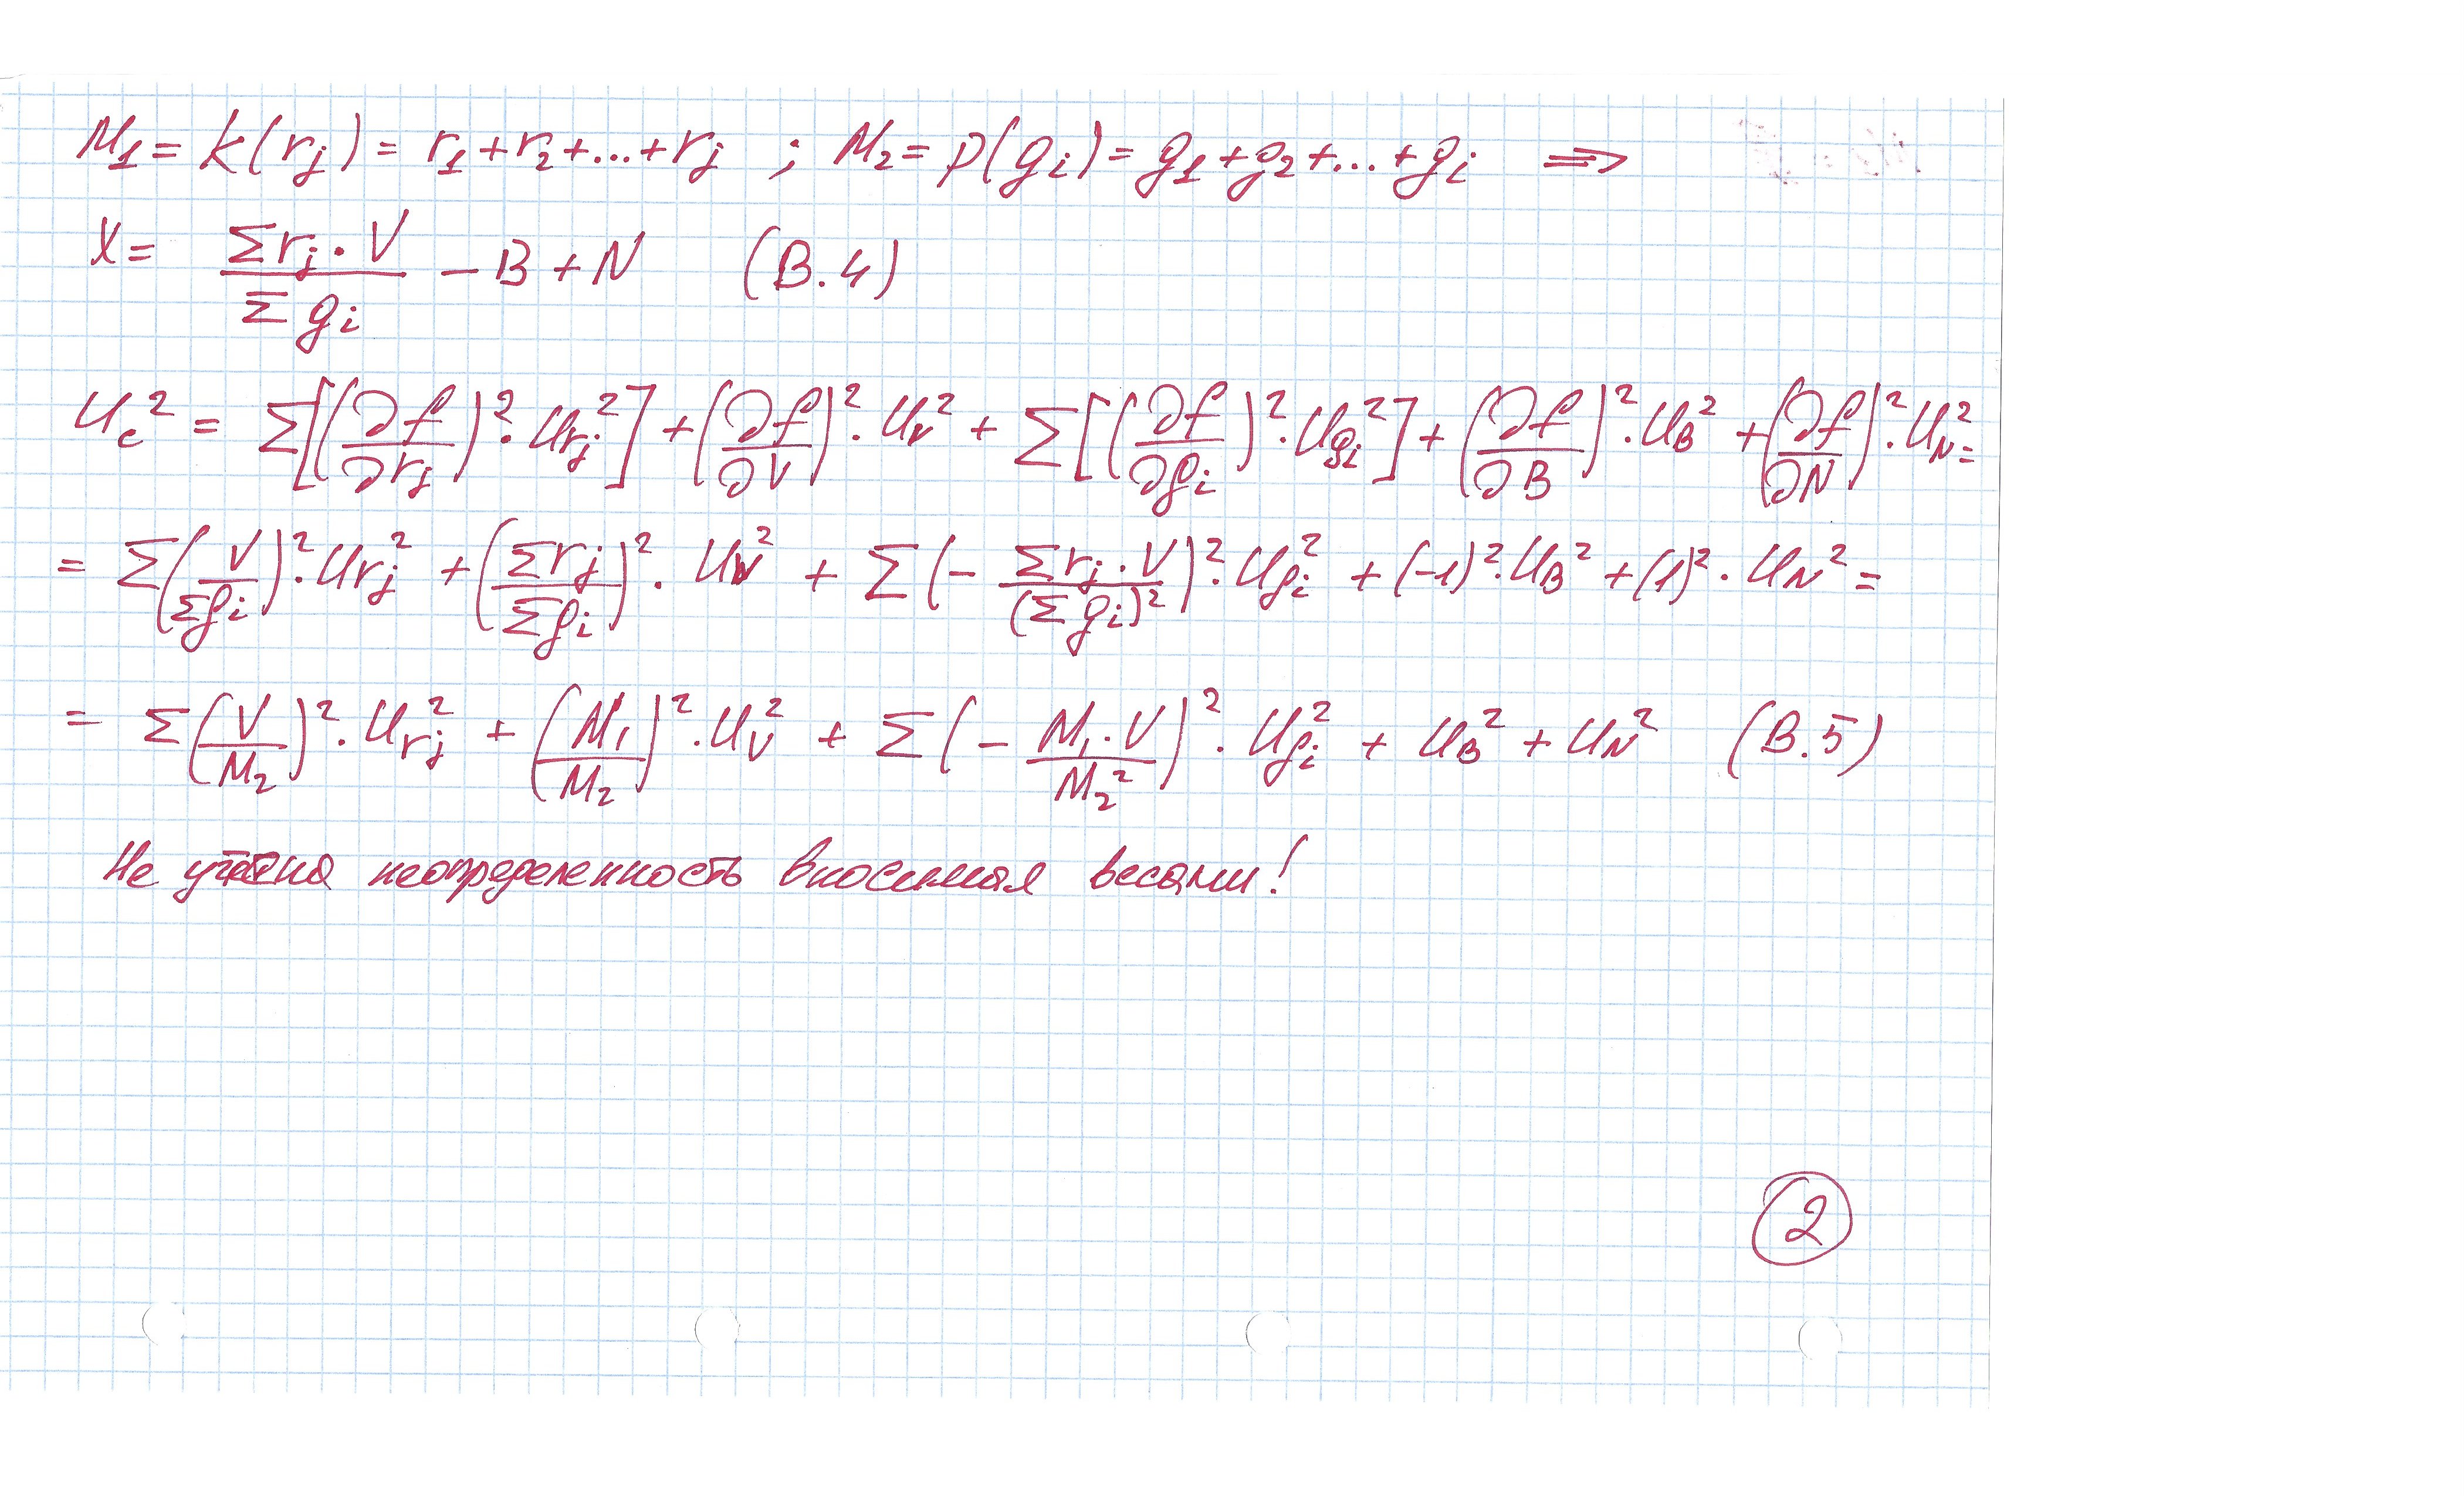 M₁ = k(rⱼ) = r₁ + r₂ + ... + rⱼ ; M₂ = p(gᵢ) = g₁ + g₂ + ... + gᵢ ⇒
X = (Σrⱼ · V)/(Σgᵢ) − B + N (B.4)
u_c² = Σ[(∂f/∂rⱼ)² · u_rⱼ²] + (∂f/∂V)² · u_V² + Σ[(∂f/∂gᵢ)² · u_gᵢ²] + (∂f/∂B)² · u_B² + (∂f/∂N)² · u_N² =
= Σ(V/Σgᵢ)² · u_rⱼ² + (Σrⱼ/Σgᵢ)² · u_V² + Σ(− (Σrⱼ · V)/(Σgᵢ)²)² · u_gᵢ² + (−1)² · u_B² + (1)² · u_N² =
= Σ(V/M₂)² · u_rⱼ² + (M₁/M₂)² · u_V² + Σ(− (M₁ · V)/M₂²)² · u_gᵢ² + u_B² + u_N² (B.5)
Не учтена неопределенность вносимая весами!
2